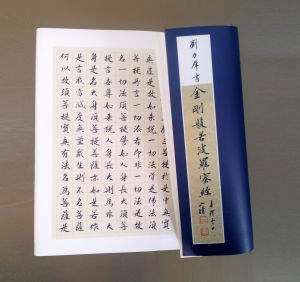 金剛般若波羅蜜經
三菩提於是中無實
無虛是故如來說一切法皆是佛法須
菩提所言一切法者即非一切法是故
名一切法須菩提譬如人身長大須菩
提言世尊如來說人身長大則為非大
身是名大身須菩提菩薩亦如是若作
是言我當滅度無量眾生則不名菩薩
何以故須菩提實無有法名為菩薩是